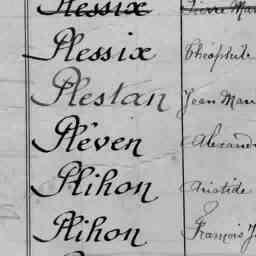 Plessix Pierre Mar
Plessix Théophile
Plestan Jean Mari
Pléven Alexand
Plihon Aristide
Plihon François J